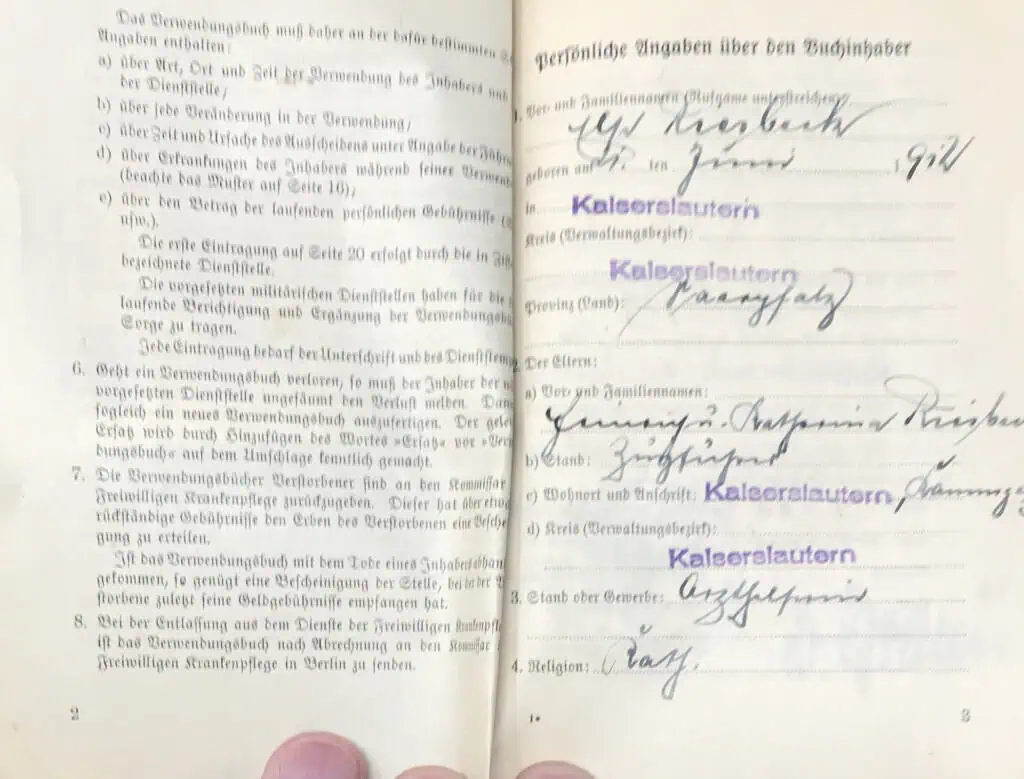 Das Verwendungsbuch muß daher an der dafür bestimmten
Angaben enthalten:
a) über Art, Ort und Zeit der Verwendung des Inhabers und
der Dienststelle,
b) über jede Veränderung in der Verwendung,
c) über Zeit und Ursache des Ausscheidens unter Angabe der
d) über Erkrankungen des Inhabers während seiner
(beachte das Muster auf Seite 16),
e) über den Betrag der laufenden persönlichen Gebührnisse
usw.).
Die erste Eintragung auf Seite 20 erfolgt durch die in
bezeichnete Dienststelle.
Die vorgesetzten militärischen Dienststellen haben für die
laufende Berichtigung und Ergänzung der
Sorge zu tragen.
Jede Eintragung bedarf der Unterschrift und des
6. Geht ein Verwendungsbuch verloren, so muß der Inhaber der
vorgesetzten Dienststelle ungesäumt den Verlust melden.
sogleich ein neues Verwendungsbuch auszufertigen. Der
Ersatz wird durch Hinzufügen des Wortes »Ersatz« vor
bungsbuch« auf dem Umschlage kenntlich gemacht.
7. Die Verwendungsbücher Verstorbener sind an den Kommissar
Freiwilligen Krankenpflege zurückzugeben. Dieser hat über
rückständige Gebührnisse den Erben des Verstorbenen eine
gung zu erteilen.
Ist das Verwendungsbuch mit dem Tode eines Inhabers
gekommen, so genügt eine Bescheinigung der Stelle, bei der
storbene zuletzt seine Geldgebührnisse empfangen hat.
8. Bei der Entlassung aus dem Dienste der Freiwilligen
ist das Verwendungsbuch nach Abrechnung an den Kommissar
Freiwilligen Krankenpflege in Berlin zu senden.
2
Persönliche Angaben über den Buchinhaber
1. Vor- und Familiennamen (Rufname unterstreichen):
geboren am ten Juni 19
in Kaiserslautern
Kreis (Verwaltungsbezirk):
Kaiserslautern
Provinz (Land): Saarpfalz
2. Der Eltern:
a) Vor- und Familiennamen:
Heinrich u. Katharina
b) Stand: Zugführer
c) Wohnort und Anschrift: Kaiserslautern,
d) Kreis (Verwaltungsbezirk):
Kaiserslautern
3. Stand oder Gewerbe: Arzthelferin
4. Religion: Kath.
1*
3